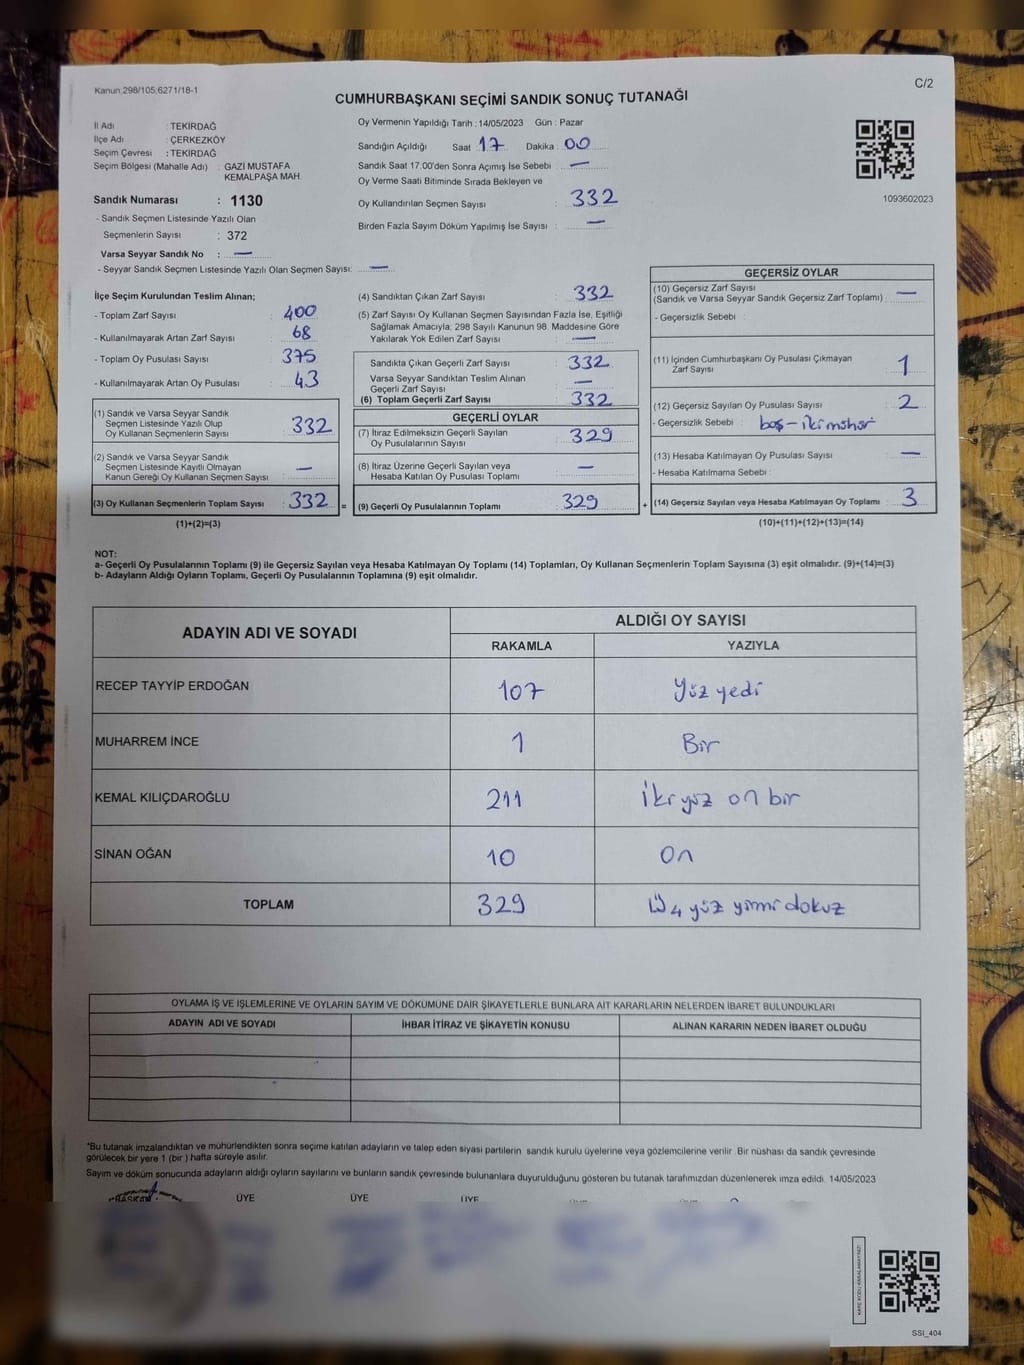 Kanun;298/105;6271/18-1
C/2
CUMHURBAŞKANI SEÇİMİ SANDIK SONUÇ TUTANAĞI
İl Adı : TEKİRDAĞ
İlçe Adı : ÇERKEZKÖY
Seçim Çevresi : TEKİRDAĞ
Seçim Bölgesi (Mahalle Adı) : GAZİ MUSTAFA
KEMALPAŞA MAH.
Sandık Numarası : 1130
- Sandık Seçmen Listesinde Yazılı Olan
Seçmenlerin Sayısı : 372
Varsa Seyyar Sandık No : —
- Seyyar Sandık Seçmen Listesinde Yazılı Olan Seçmen Sayısı: —
Oy Vermenin Yapıldığı Tarih : 14/05/2023 Gün : Pazar
Sandığın Açıldığı Saat 17 Dakika 00
Sandık Saat 17.00'den Sonra Açımış İse Sebebi : —
Oy Verme Saati Bitiminde Sırada Bekleyen ve
Oy Kullandırılan Seçmen Sayısı : 332
Birden Fazla Sayım Döküm Yapılmış İse Sayısı : —
1093602023
İlçe Seçim Kurulundan Teslim Alınan;
- Toplam Zarf Sayısı : 400
- Kullanılmayarak Artan Zarf Sayısı : 68
- Toplam Oy Pusulası Sayısı : 375
- Kullanılmayarak Artan Oy Pusulası : 43
(1) Sandık ve Varsa Seyyar Sandık
Seçmen Listesinde Yazılı Olup
Oy Kullanan Seçmenlerin Sayısı : 332
(2) Sandık ve Varsa Seyyar Sandık
Seçmen Listesinde Kayıtlı Olmayan
Kanun Gereği Oy Kullanan Seçmen Sayısı : —
(3) Oy Kullanan Seçmenlerin Toplam Sayısı : 332 =
(1)+(2)=(3)
(4) Sandıktan Çıkan Zarf Sayısı : 332
(5) Zarf Sayısı Oy Kullanan Seçmen Sayısından Fazla İse, Eşitliği
Sağlamak Amacıyla, 298 Sayılı Kanunun 98. Maddesine Göre
Yakılarak Yok Edilen Zarf Sayısı : —
Sandıkta Çıkan Geçerli Zarf Sayısı : 332
Varsa Seyyar Sandıktan Teslim Alınan
Geçerli Zarf Sayısı : —
(6) Toplam Geçerli Zarf Sayısı : 332
GEÇERLİ OYLAR
(7) İtiraz Edilmeksizin Geçerli Sayılan
Oy Pusulalarının Sayısı : 329
(8) İtiraz Üzerine Geçerli Sayılan veya
Hesaba Katılan Oy Pusulası Toplamı : —
(9) Geçerli Oy Pusulalarının Toplamı : 329 +
GEÇERSİZ OYLAR
(10) Geçersiz Zarf Sayısı
(Sandık ve Varsa Seyyar Sandık Geçersiz Zarf Toplamı) : —
- Geçersizlik Sebebi :
(11) İçinden Cumhurbaşkanı Oy Pusulası Çıkmayan
Zarf Sayısı : 1
(12) Geçersiz Sayılan Oy Pusulası Sayısı : 2
- Geçersizlik Sebebi : boş - iki mühür
(13) Hesaba Katılmayan Oy Pusulası Sayısı : —
- Hesaba Katılmama Sebebi :
(14) Geçersiz Sayılan veya Hesaba Katılmayan Oy Toplamı : 3
(10)+(11)+(12)+(13)=(14)
NOT:
a- Geçerli Oy Pusulalarının Toplamı (9) ile Geçersiz Sayılan veya Hesaba Katılmayan Oy Toplamı (14) Toplamları, Oy Kullanan Seçmenlerin Toplam Sayısına (3) eşit olmalıdır. (9)+(14)=(3)
b- Adayların Aldığı Oyların Toplamı, Geçerli Oy Pusulalarının Toplamına (9) eşit olmalıdır.
ADAYIN ADI VE SOYADI
ALDIĞI OY SAYISI
RAKAMLA YAZIYLA
RECEP TAYYİP ERDOĞAN 107 Yüz yedi
MUHARREM İNCE 1 Bir
KEMAL KILIÇDAROĞLU 211 İki yüz on bir
SİNAN OĞAN 10 On
TOPLAM 329 Üç yüz yirmi dokuz
OYLAMA İŞ VE İŞLEMLERİNE VE OYLARIN SAYIM VE DÖKÜMÜNE DAİR ŞİKAYETLERLE BUNLARA AİT KARARLARIN NELERDEN İBARET BULUNDUKLARI
ADAYIN ADI VE SOYADI İHBAR İTİRAZ VE ŞİKAYETİN KONUSU ALINAN KARARIN NEDEN İBARET OLDUĞU
*Bu tutanak imzalandıktan ve mühürlendikten sonra seçime katılan adayların ve talep eden siyasi partilerin sandık kurulu üyelerine veya gözlemcilerine verilir. Bir nüshası da sandık çevresinde
görülecek bir yere 1 (bir ) hafta süreyle asılır.
Sayım ve döküm sonucunda adayların aldığı oyların sayılarını ve bunların sandık çevresinde bulunanlara duyurulduğunu gösteren bu tutanak tarafımızdan düzenlenerek imza edildi. 14/05/2023
BAŞKAN ÜYE ÜYE ÜYE
KARE KODU KARALAMAYINIZ!
SSI_404